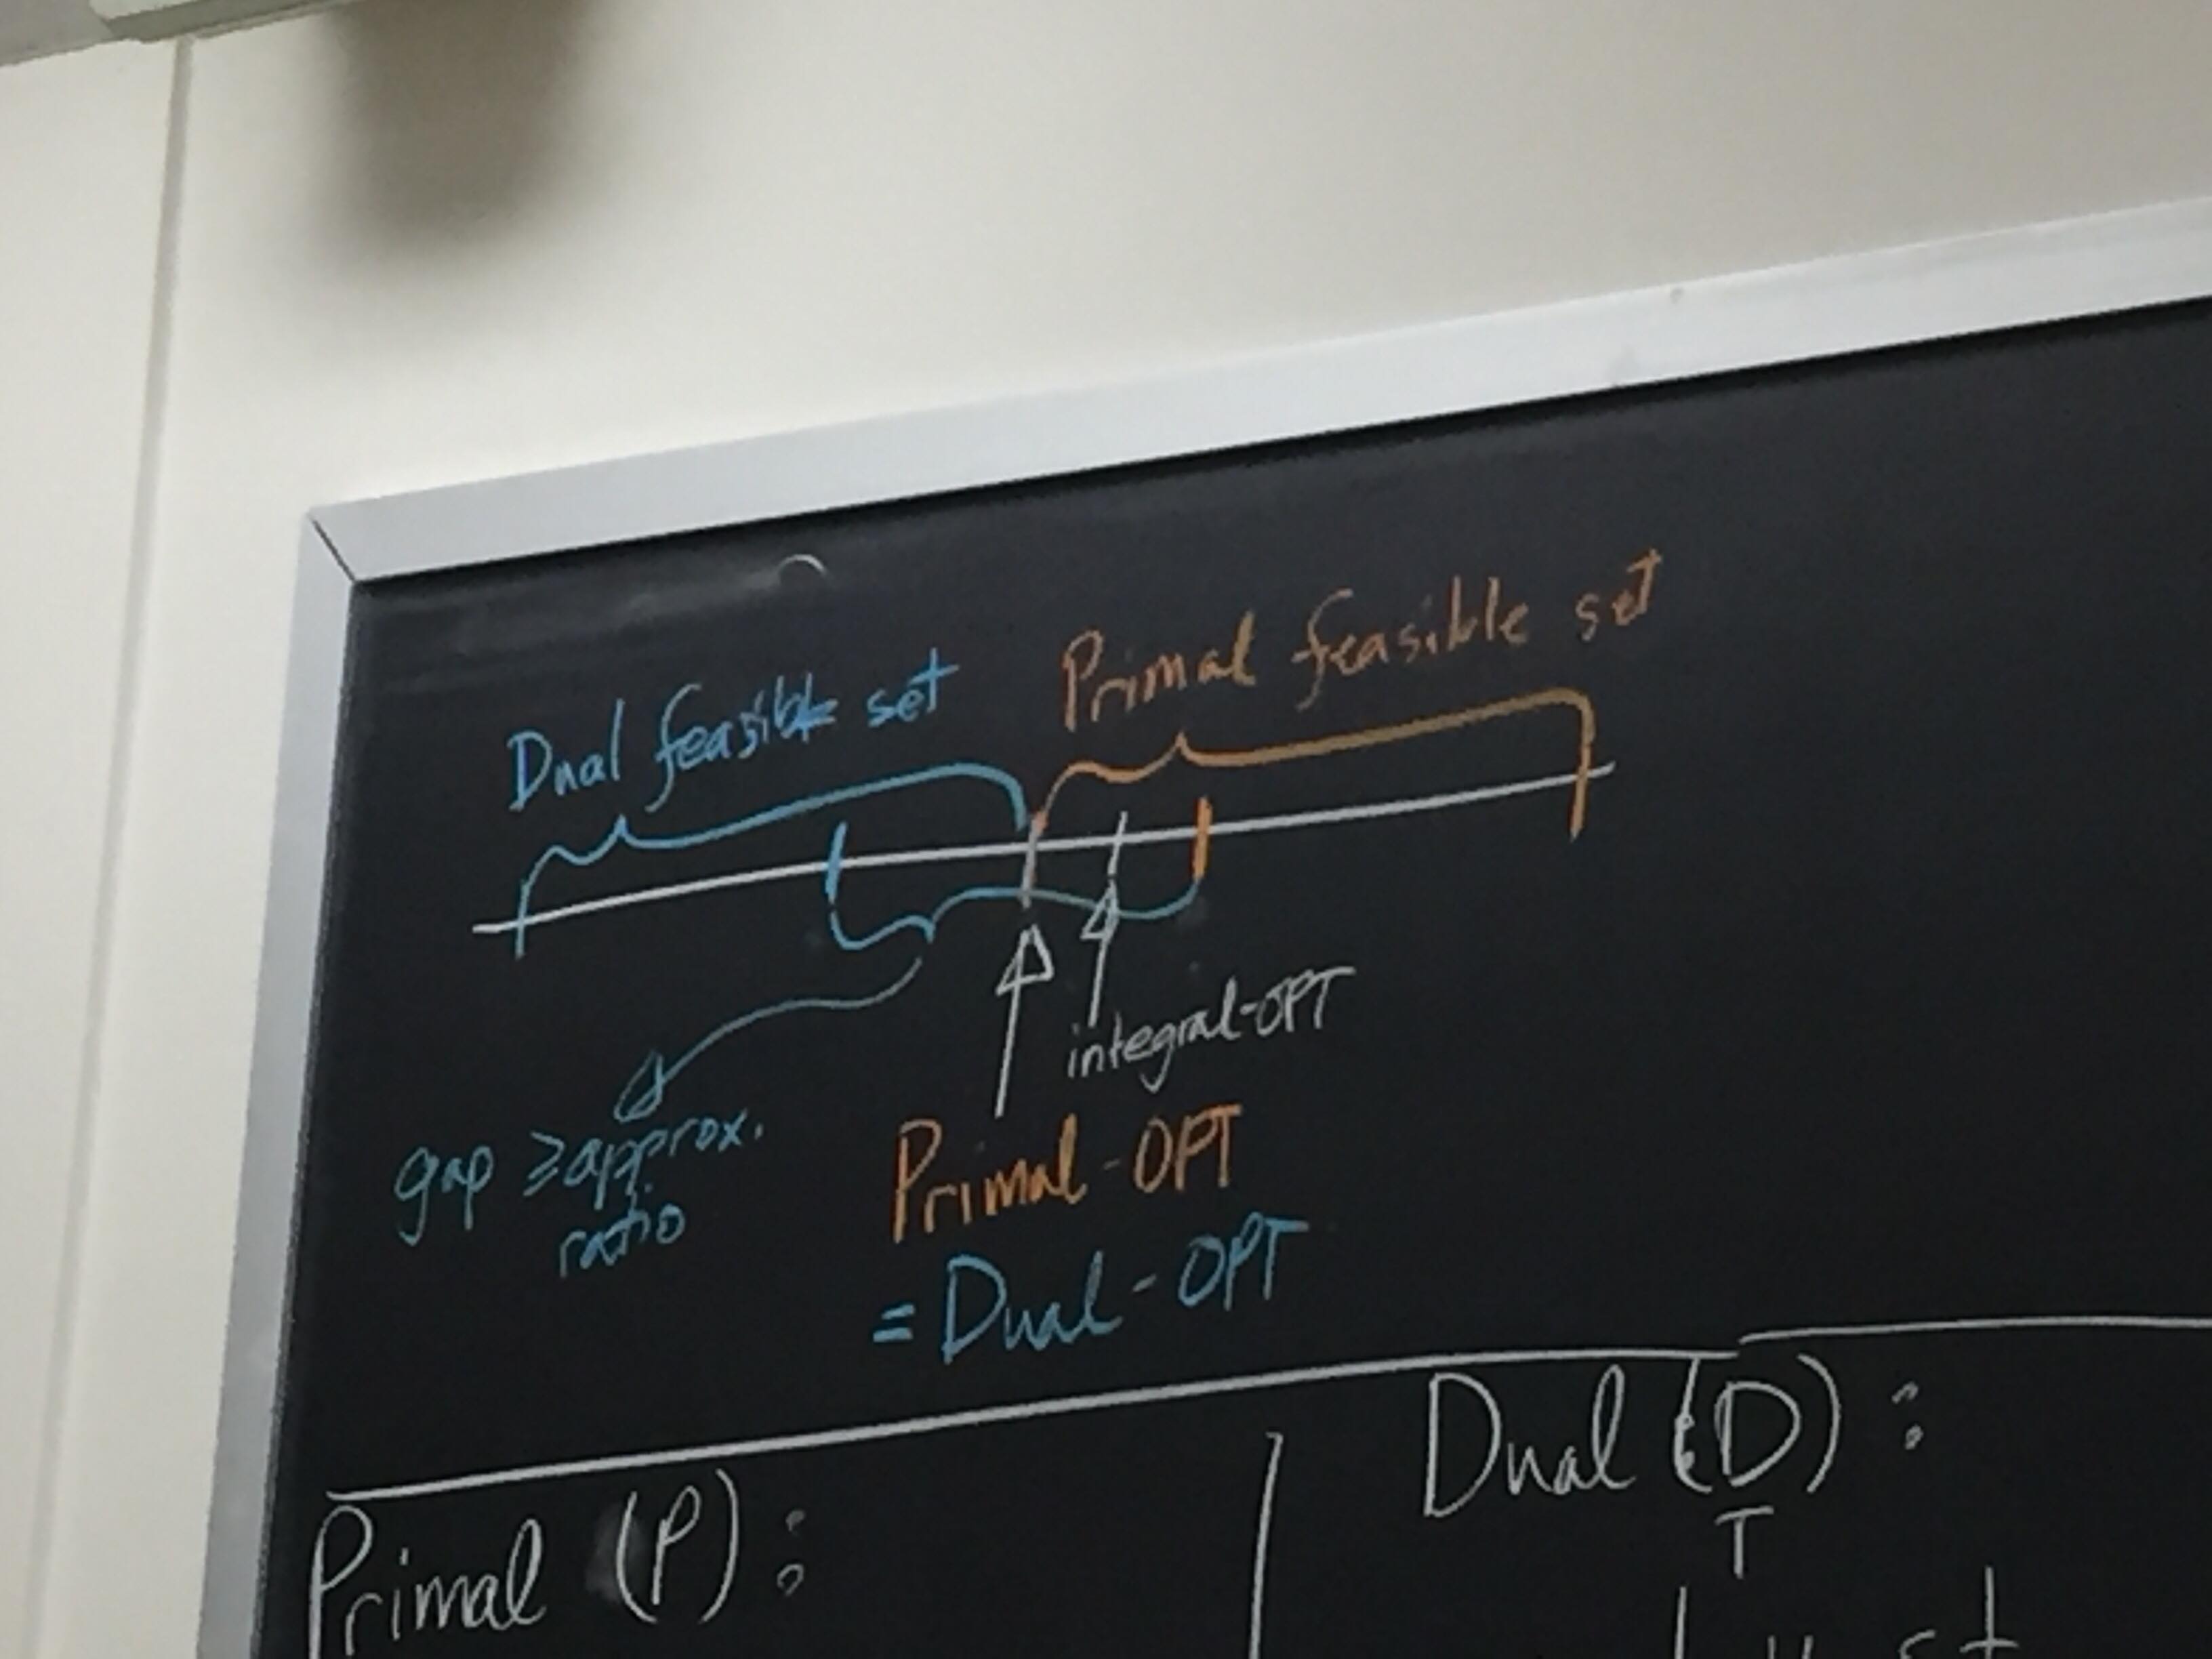 Dual feasible set
Primal feasible set
integral-OPT
gap ≥ approx.
ratio
Primal-OPT
= Dual-OPT
Primal (P):
Dual (D):
T